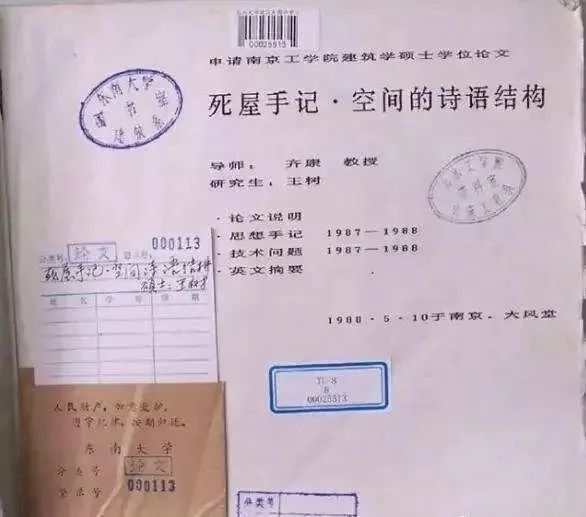 00025513
申请南京工学院建筑学硕士学位论文
死屋手记·空间的诗语结构
东南大学
图书室
建筑系
导师： 齐康 教授
研究生：王树
·论文说明
·思想手记 1987—1988
·技术问题 1987—1988
·英文摘要
1988·5·10于南京．大风堂
分类号 论文 登录号 000113
死屋手记·空间诗语结构
硕士：王树
姓名 学号 日期
TU-8
8
00025513
人民财产，如意爱护，
遵守纪律，按期归还。
东南大学
分类号 论文
登录号 000113
分类号